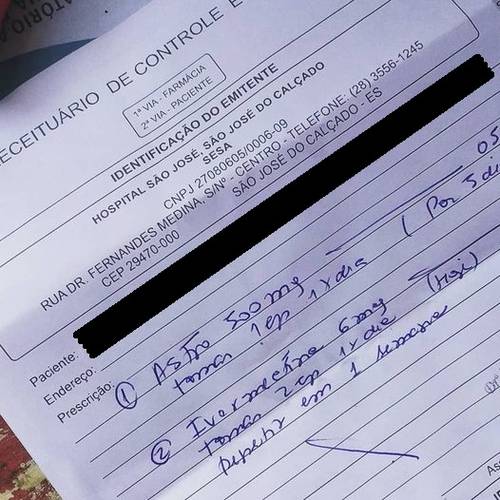 RECEITUÁRIO DE CONTROLE E
1ª VIA - FARMÁCIA
2ª VIA - PACIENTE
IDENTIFICAÇÃO DO EMITENTE
HOSPITAL SÃO JOSÉ, SÃO JOSÉ DO CALÇADO
SESA
CNPJ 27080605/0006-09
RUA DR. FERNANDES MEDINA, S/Nº - CENTRO - TELEFONE: (28) 3556-1245
CEP 29470-000 SÃO JOSÉ DO CALÇADO - ES
Paciente:
Endereço:
Prescrição:
① Astro 500mg 05
tomar 1cp 1x dia ( Por 5 di
② Ivermectina 6mg (Hoje)
tomar 2cp 1x dia
Repetir em 1 semana